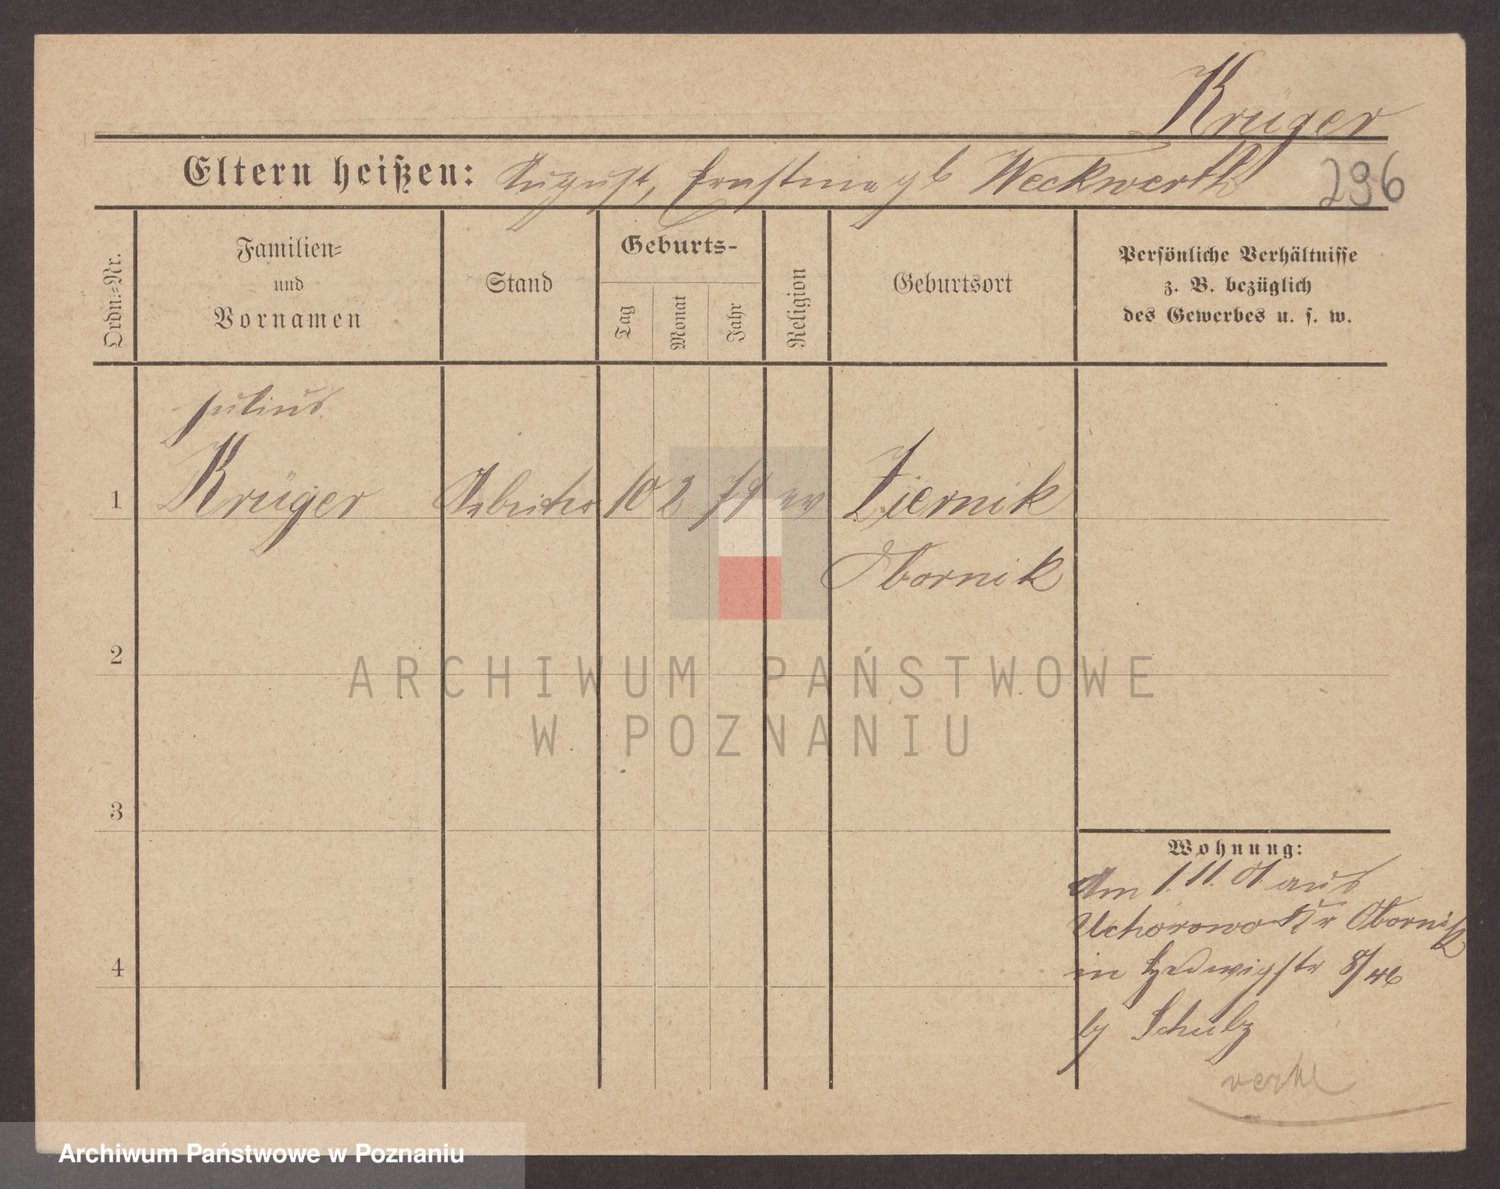 Krüger
Eltern heißen: August, Ernstine gb Weckwerth
296
Ordn.=Nr.
Familien=
und
Vornamen
Stand
Geburts-
Tag
Monat
Jahr
Religion
Geburtsort
Persönliche Verhältnisse
z. B. bezüglich
des Gewerbes u. s. w.
Julius
1 Krüger Arbeiter 10 2 79 ev Ziernik
Obornik
2
ARCHIWUM PAŃSTWOWE
W POZNANIU
3
Wohnung:
Am 1. 11. 01 aus
Uchorowo Kr Obornik
4
in Hedwigstr 8/46
by Schulz
Archiwum Państwowe w Poznaniu